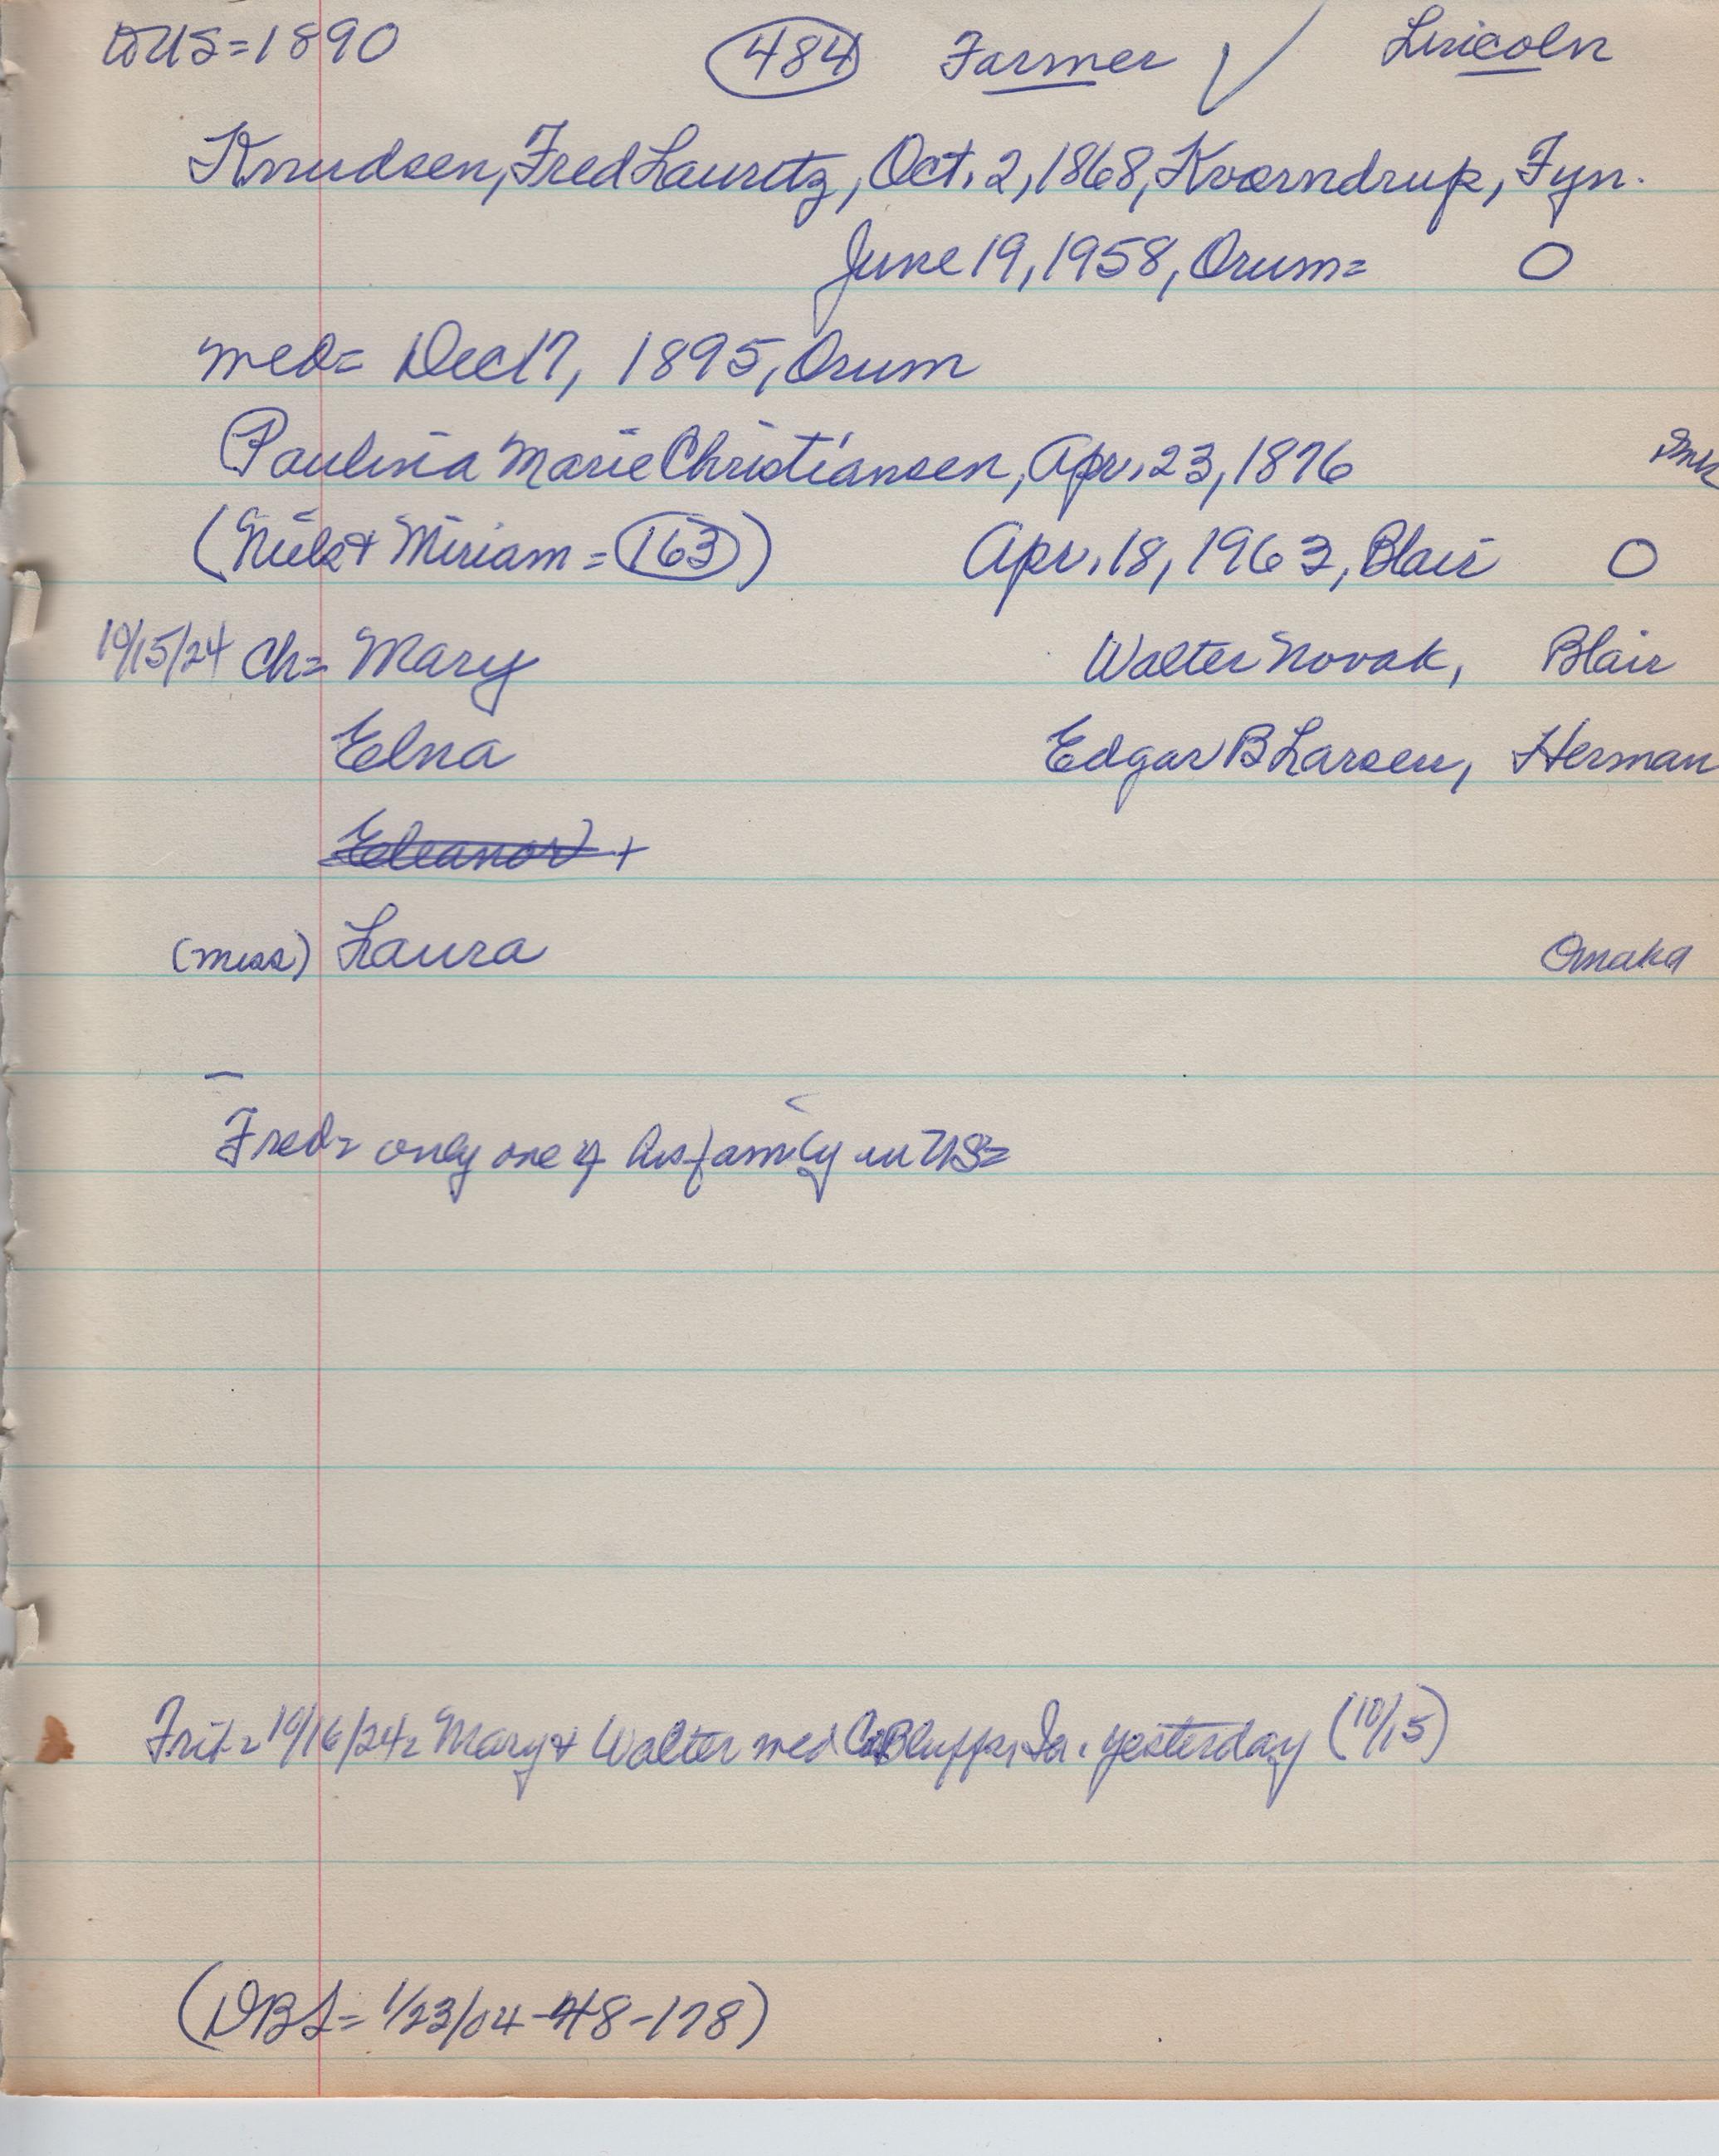 to US=1890 484 Farmer ✓ Lincoln
Knudsen, Fred Lauritz, Oct. 2, 1868, Kvaerndrup, Fyn.
June 19, 1958, Orum= O
med= Dec 17, 1895, Orum
Paulina Marie Christiansen, Apr. 23, 1876
(Niels + Miriam = 163) Apr. 18, 1963, Blair O
10/15/24 Ch= Mary Walter Novak, Blair
Elna Edgar B Larsen, Herman
Eleanor +
(Miss) Laura Omaha
Fred= only one of his family in US=
10/16/24= Mary + Walter med Co Bluffs, Ia. yesterday (10/15)
(DBL= 1/23/04-48-178)